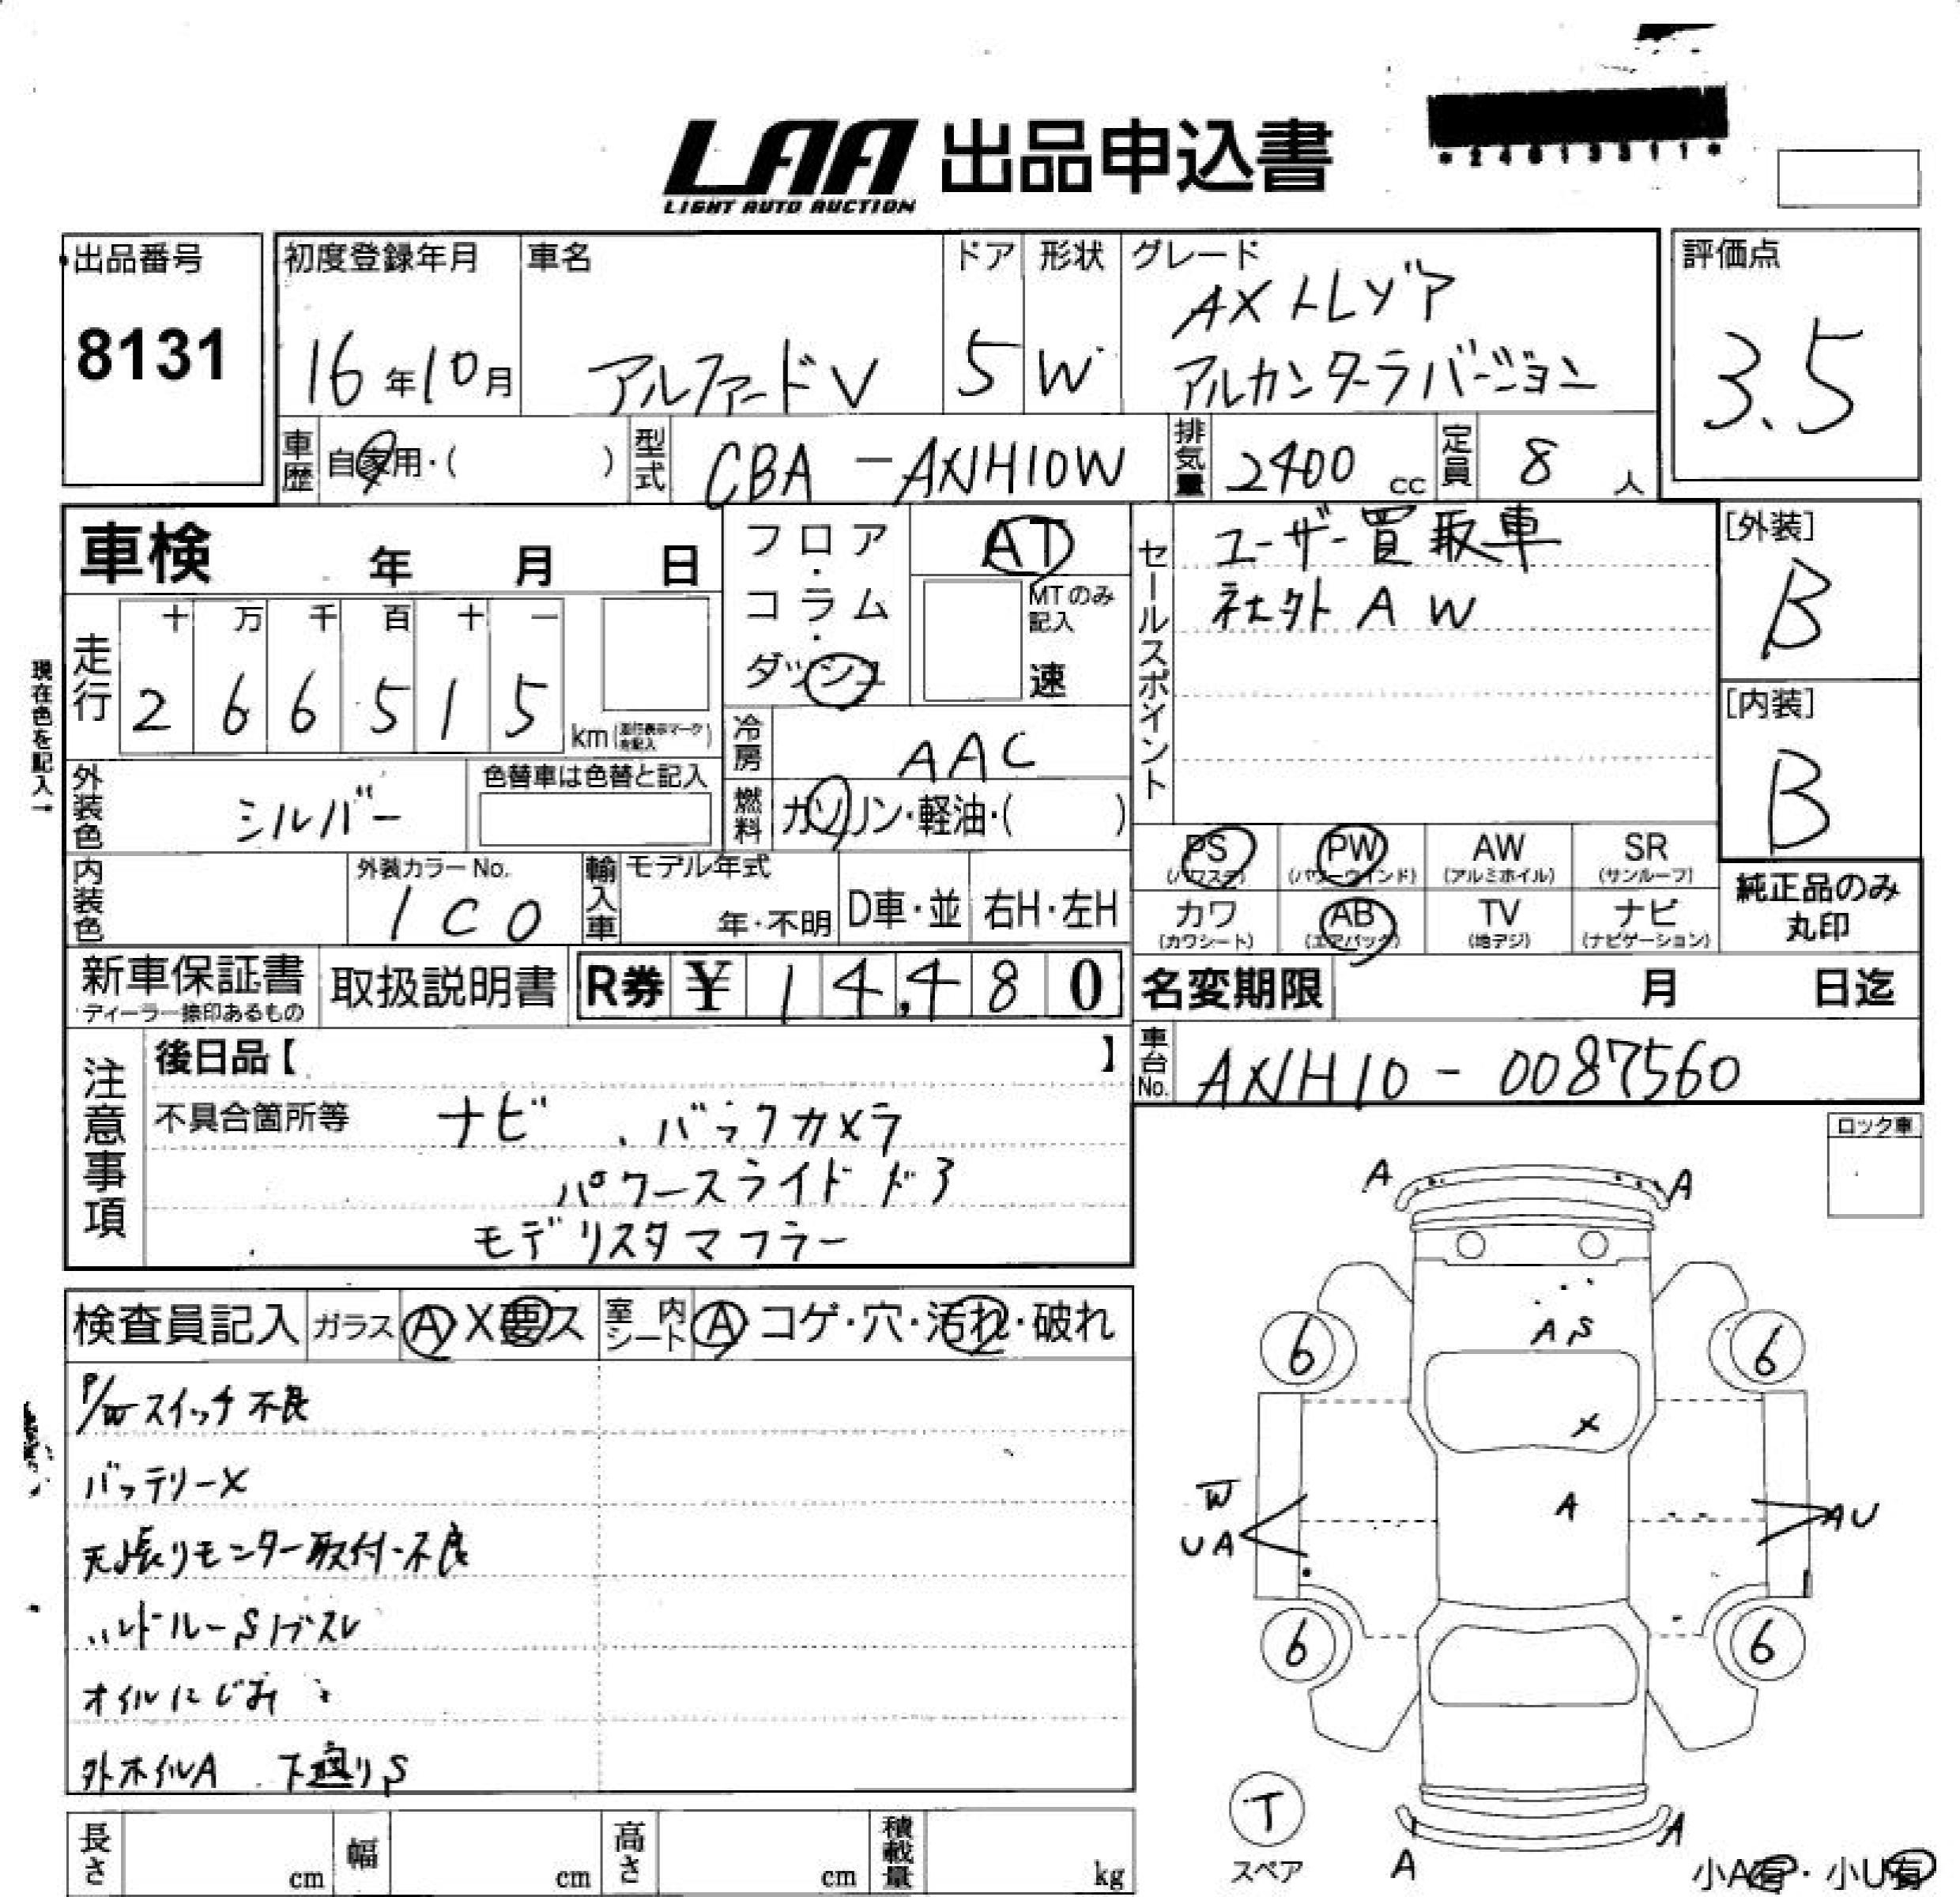 LAA 出品申込書
LIGHT AUTO AUCTION
出品番号
8131
初度登録年月
16年10月
車名
アルファードV
ドア
5
形状
W
グレード
AXトレゾア
アルカンターラバージョン
評価点
3.5
車歴 自家用・( )
型式 CBA-ANH10W
排気量 2400 cc
定員 8 人
車検 年 月 日
フロア・コラム・ダッシュ
AT
MTのみ記入
速
セールスポイント
ユーザー買取車
社外AW
[外装]
B
[内装]
B
現在色を記入→
走行
十 万 千 百 十 一
2 6 6 5 1 5
km(走行表示マークを記入)
冷房 AAC
外装色 シルバー
色替車は色替と記入
燃料 ガソリン・軽油・( )
PS (パワステ) PW (パワーウインド) AW (アルミホイル) SR (サンルーフ)
カワ (カワシート) AB (エアバッグ) TV (地デジ) ナビ (ナビゲーション)
純正品のみ丸印
内装色
外装カラーNo.
1C0
輸入車 モデル年式
年・不明 D車・並 右H・左H
新車保証書
ディーラー捺印あるもの
取扱説明書
R券 ¥ 14,480
名変期限 月 日迄
車台No. ANH10-0087560
注意事項
後日品【 】
不具合箇所等 ナビ、バックカメラ
パワースライドドア
モデリスタマフラー
ロック車
検査員記入 ガラス A X 要ス 室内シート A コゲ・穴・汚れ・破れ
P/Wスイッチ不良
バッテリーX
天張りモニター取付不良
オイルにじみ
外ホイルA 下廻りS
A A
A S
6 6
X
W
UA
A
AU
6 6
T
スペア
A A
小A有・小U有
長さ cm 幅 cm 高さ cm 積載量 kg